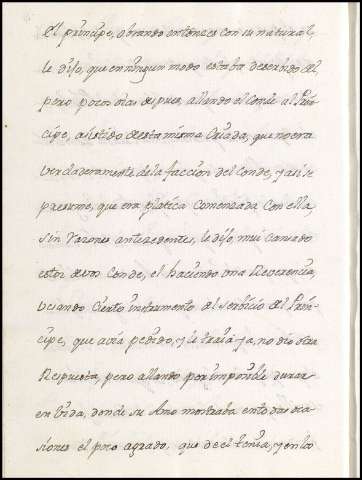 el principe, obrando entonces con su natural,
le dijo, que en ningun modo estaba deservido del,
pero pocos dias despues, allando el Conde al Prin-
cipe, asistido desta misma Criada, que no era
verdaderamente de la faccion del Conde, y asi se
presume, que era platica Comenzada Con ella,
sin razones antezedentes, le dijo, mui cansado
estoi de vos Conde, el haciendo una Reverencia,
vejando Cierto instrumento del servicio del Prin-
cipe, que avia pedido, y le traia ya, no dio otra
Respuesta, pero allando por imposible durar
en vida, donde su Amo mostraba en todas oca-
siones el poco agrado, que de el tenia, y en los